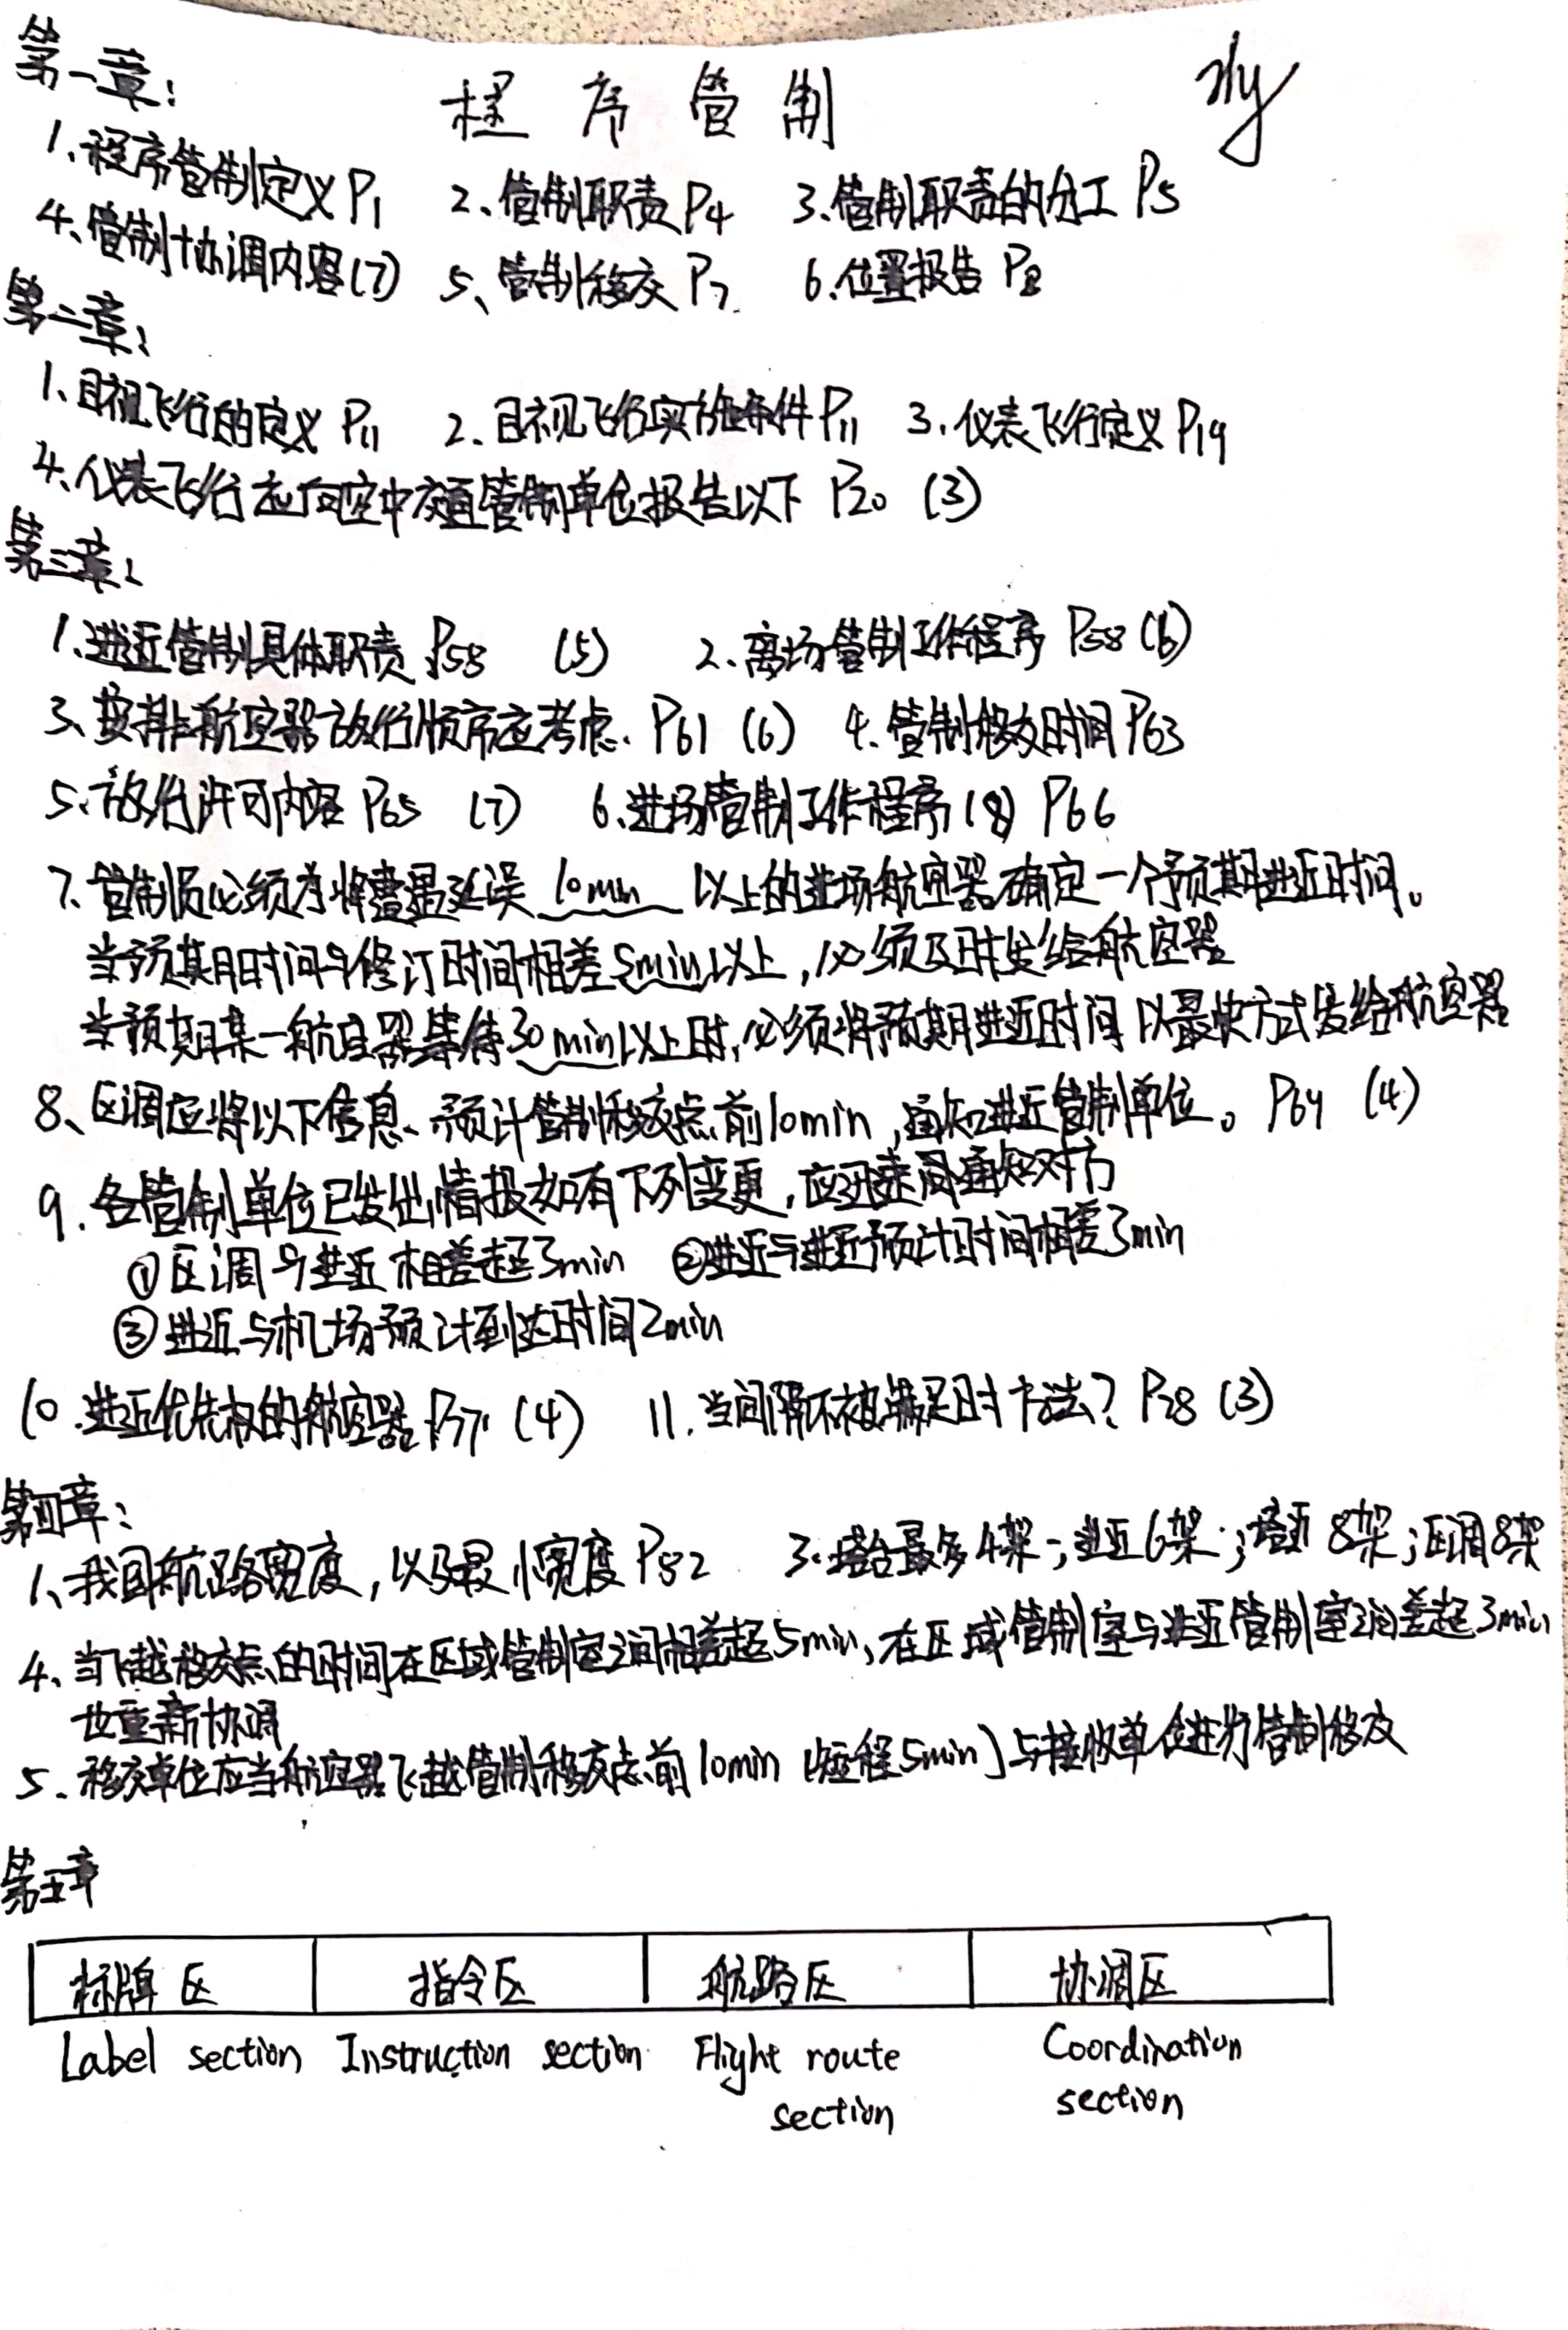 第一章：
程序管制
1、程序管制定义P1 2、管制职责P4 3、管制职责的分工 P5
4、管制协调内容(7) 5、管制移交 P7 6、位置报告 P8
第二章：
1、目视飞行的定义 P11 2、目视飞行实施条件P11 3、仪表飞行定义P19
4、仪表飞行应向空中交通管制单位报告以下 P20 (3)
第三章：
1、进近管制具体职责 P58 (5) 2、离场管制工作程序 P58(6)
3、安排航空器放行顺序应考虑. P61 (6) 4、管制移交时间P63
5、放行许可内容 P65 (7) 6、进场管制工作程序(8) P66
7、管制员必须为将遭遇延误 10min 以上的进场航空器确定一个预期进近时间。
当预期时间与修订时间相差5min以上，必须及时发给航空器
当预期某一航空器等待30min以上时，必须将预期进近时间以最快方式发给航空器
8、区调应将以下信息、预计管制移交点前10min，通知进近管制单位。P64 (4)
9、各管制单位已发出情报如有下列变更，应迅速通知对方
①区调与进近相差超3min ②进近与进近预计时间相差3min
③进近与机场预计到达时间2min
10、进近优先权的航空器 P77 (4) 11、当间隔不被满足时方法？ (3)
第四章：
1、我国航路宽度，以及最小宽度 P82 3、塔台最多4架；进近6架；塔近8架；区调8架
4、当飞越移交点的时间在区域管制室之间相差超5min，在区域管制室与进近管制室之间差超3min
也重新协调
5、移交单位应当航空器飞越管制移交点前10min（短程5min）与接收单位进行管制移交
第五章
标牌区 指令区 航路区 协调区
Label section Instruction section Flight route section Coordination section